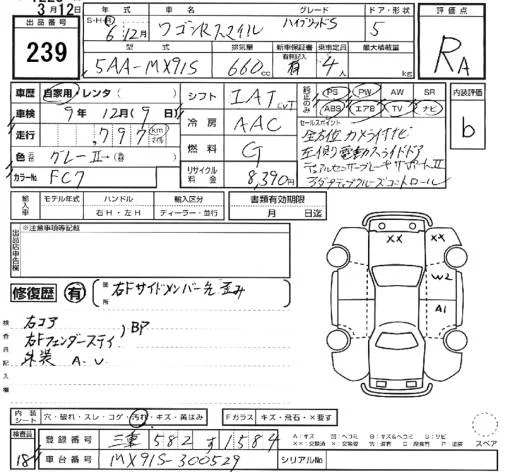 3月12日
出品番号
239
年式 車名 グレード ドア・形状
S・H・R 6年12月 ワゴンRスマイル ハイブリッドS 5
型式 排気量 新車保証書 乗車定員 最大積載量
5AA-MX91S 660cc 有 4人 kg
評価点
RA
車歴 自家用・レンタ ( )
車検 9年12月(9日)
走行 797 km マイル
色 グレーⅡ→( )
カラーNo FC7
シフト IAT CVT
冷房 AAC
燃料 G
リサイクル料金 8,390円
純正のみ
PS PW AW SR
ABS エアB TV ナビ
セールスポイント
全方位カメラ付ナビ
左側電動スライドドア
デュアルセンサーブレーキサポートⅡ
アダプティブクルーズコントロール
内装評価
b
輸入車 モデル年式 ハンドル 輸入区分 書類有効期限
年 右H・左H ディーラー・並行 月 日迄
出品店申告欄
※注意事項等記載
修復歴 有 箇所 右Fサイドメンバー先歪み
検査員記入欄
右コア
右Fフェンダーステイ ) BP
外装 A.U
XX XX
W2
A1
内装シート 穴・破れ・スレ・コゲ・汚れ・キズ・黄ばみ Fガラス キズ・飛石・X要す
検査員
18
登録番号 三重 582 す1584
車台番号 MX91S-300529 シリアルNo
スペア